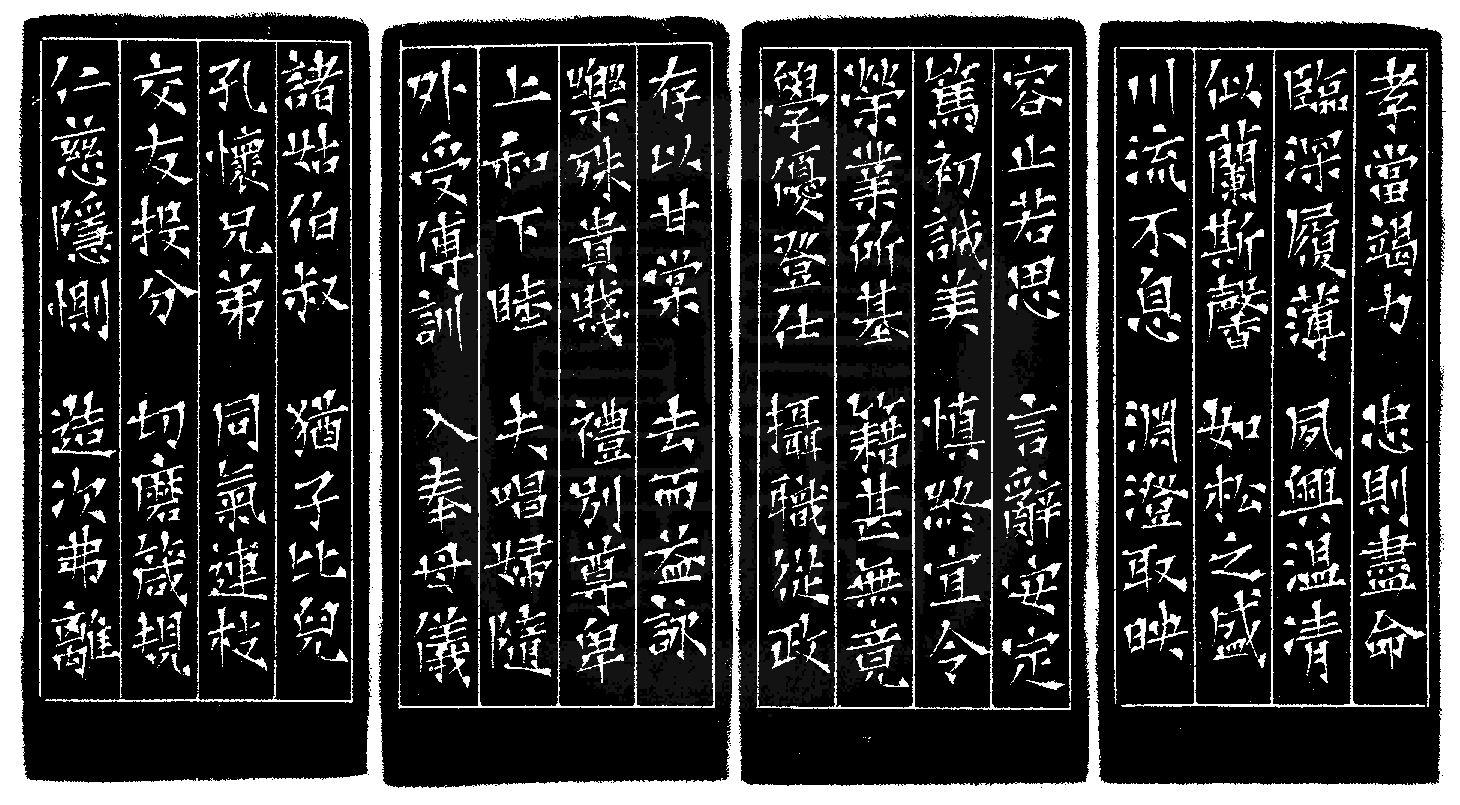 孝當竭力 忠則盡命
臨深履薄 夙興温凊
似蘭斯馨 如松之盛
川流不息 淵澄取映
容止若思 言辭安定
篤初誠美 慎終宜令
榮業所基 籍甚無竟
學優登仕 攝職從政
存以甘棠 去而益詠
樂殊貴賤 禮別尊卑
上和下睦 夫唱婦隨
外受傅訓 入奉母儀
諸姑伯叔 猶子比兒
孔懷兄弟 同氣連枝
交友投分 切磨箴規
仁慈隱惻 造次弗離